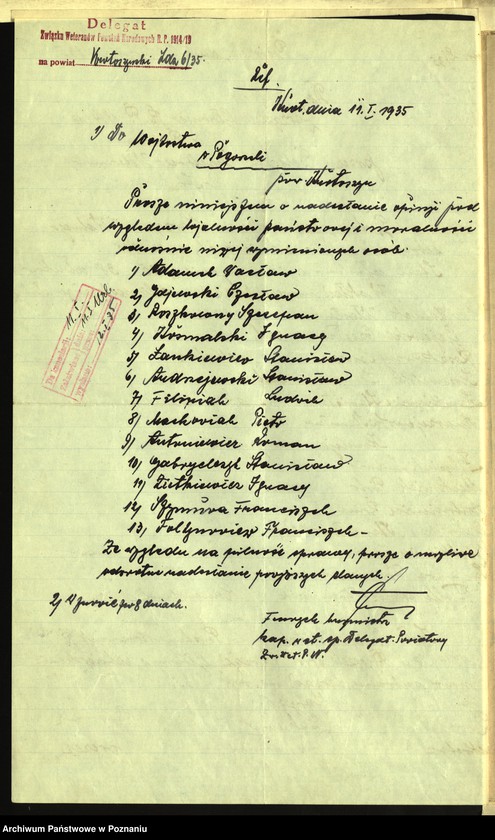 Delegat
Związku Weteranów Powstań Narodowych R. P. 1914/19
na powiat Krotoszyński Ldz 6/35.
Krot. dnia 11. I. 1935
1) Do Wójtostwa
w Pogorzeli
pow Krotoszyn
Proszę niniejszem o nadesłanie opinji pod
względem lojalności państwowej i moralności
odnośnie niżej wymienionych osób.
1) Adamek Wacław
2) Gajewski Czesław
3) Roszkowny Szczepan
4) Kośmalski Ignacy
5) Stanisław
6) Andrzejewski Stanisław
7) Filipiak Ludwik
8) Machowiak Piotr
9) Antoniewicz Roman
10) Stanisław
11) Zietkiewicz Ignacy
12) Szymura Franciszek
13) Foltynowicz Franciszek -
Ze względu na pilność sprawy, proszę o możliwe
odwrotne nadesłanie powyższych danych.
2) Wznowić po 8 dniach.
kap. w st. sp. Delegat Powiatowy
Zw. Wet. P. N.
Archiwum Państwowe w Poznaniu